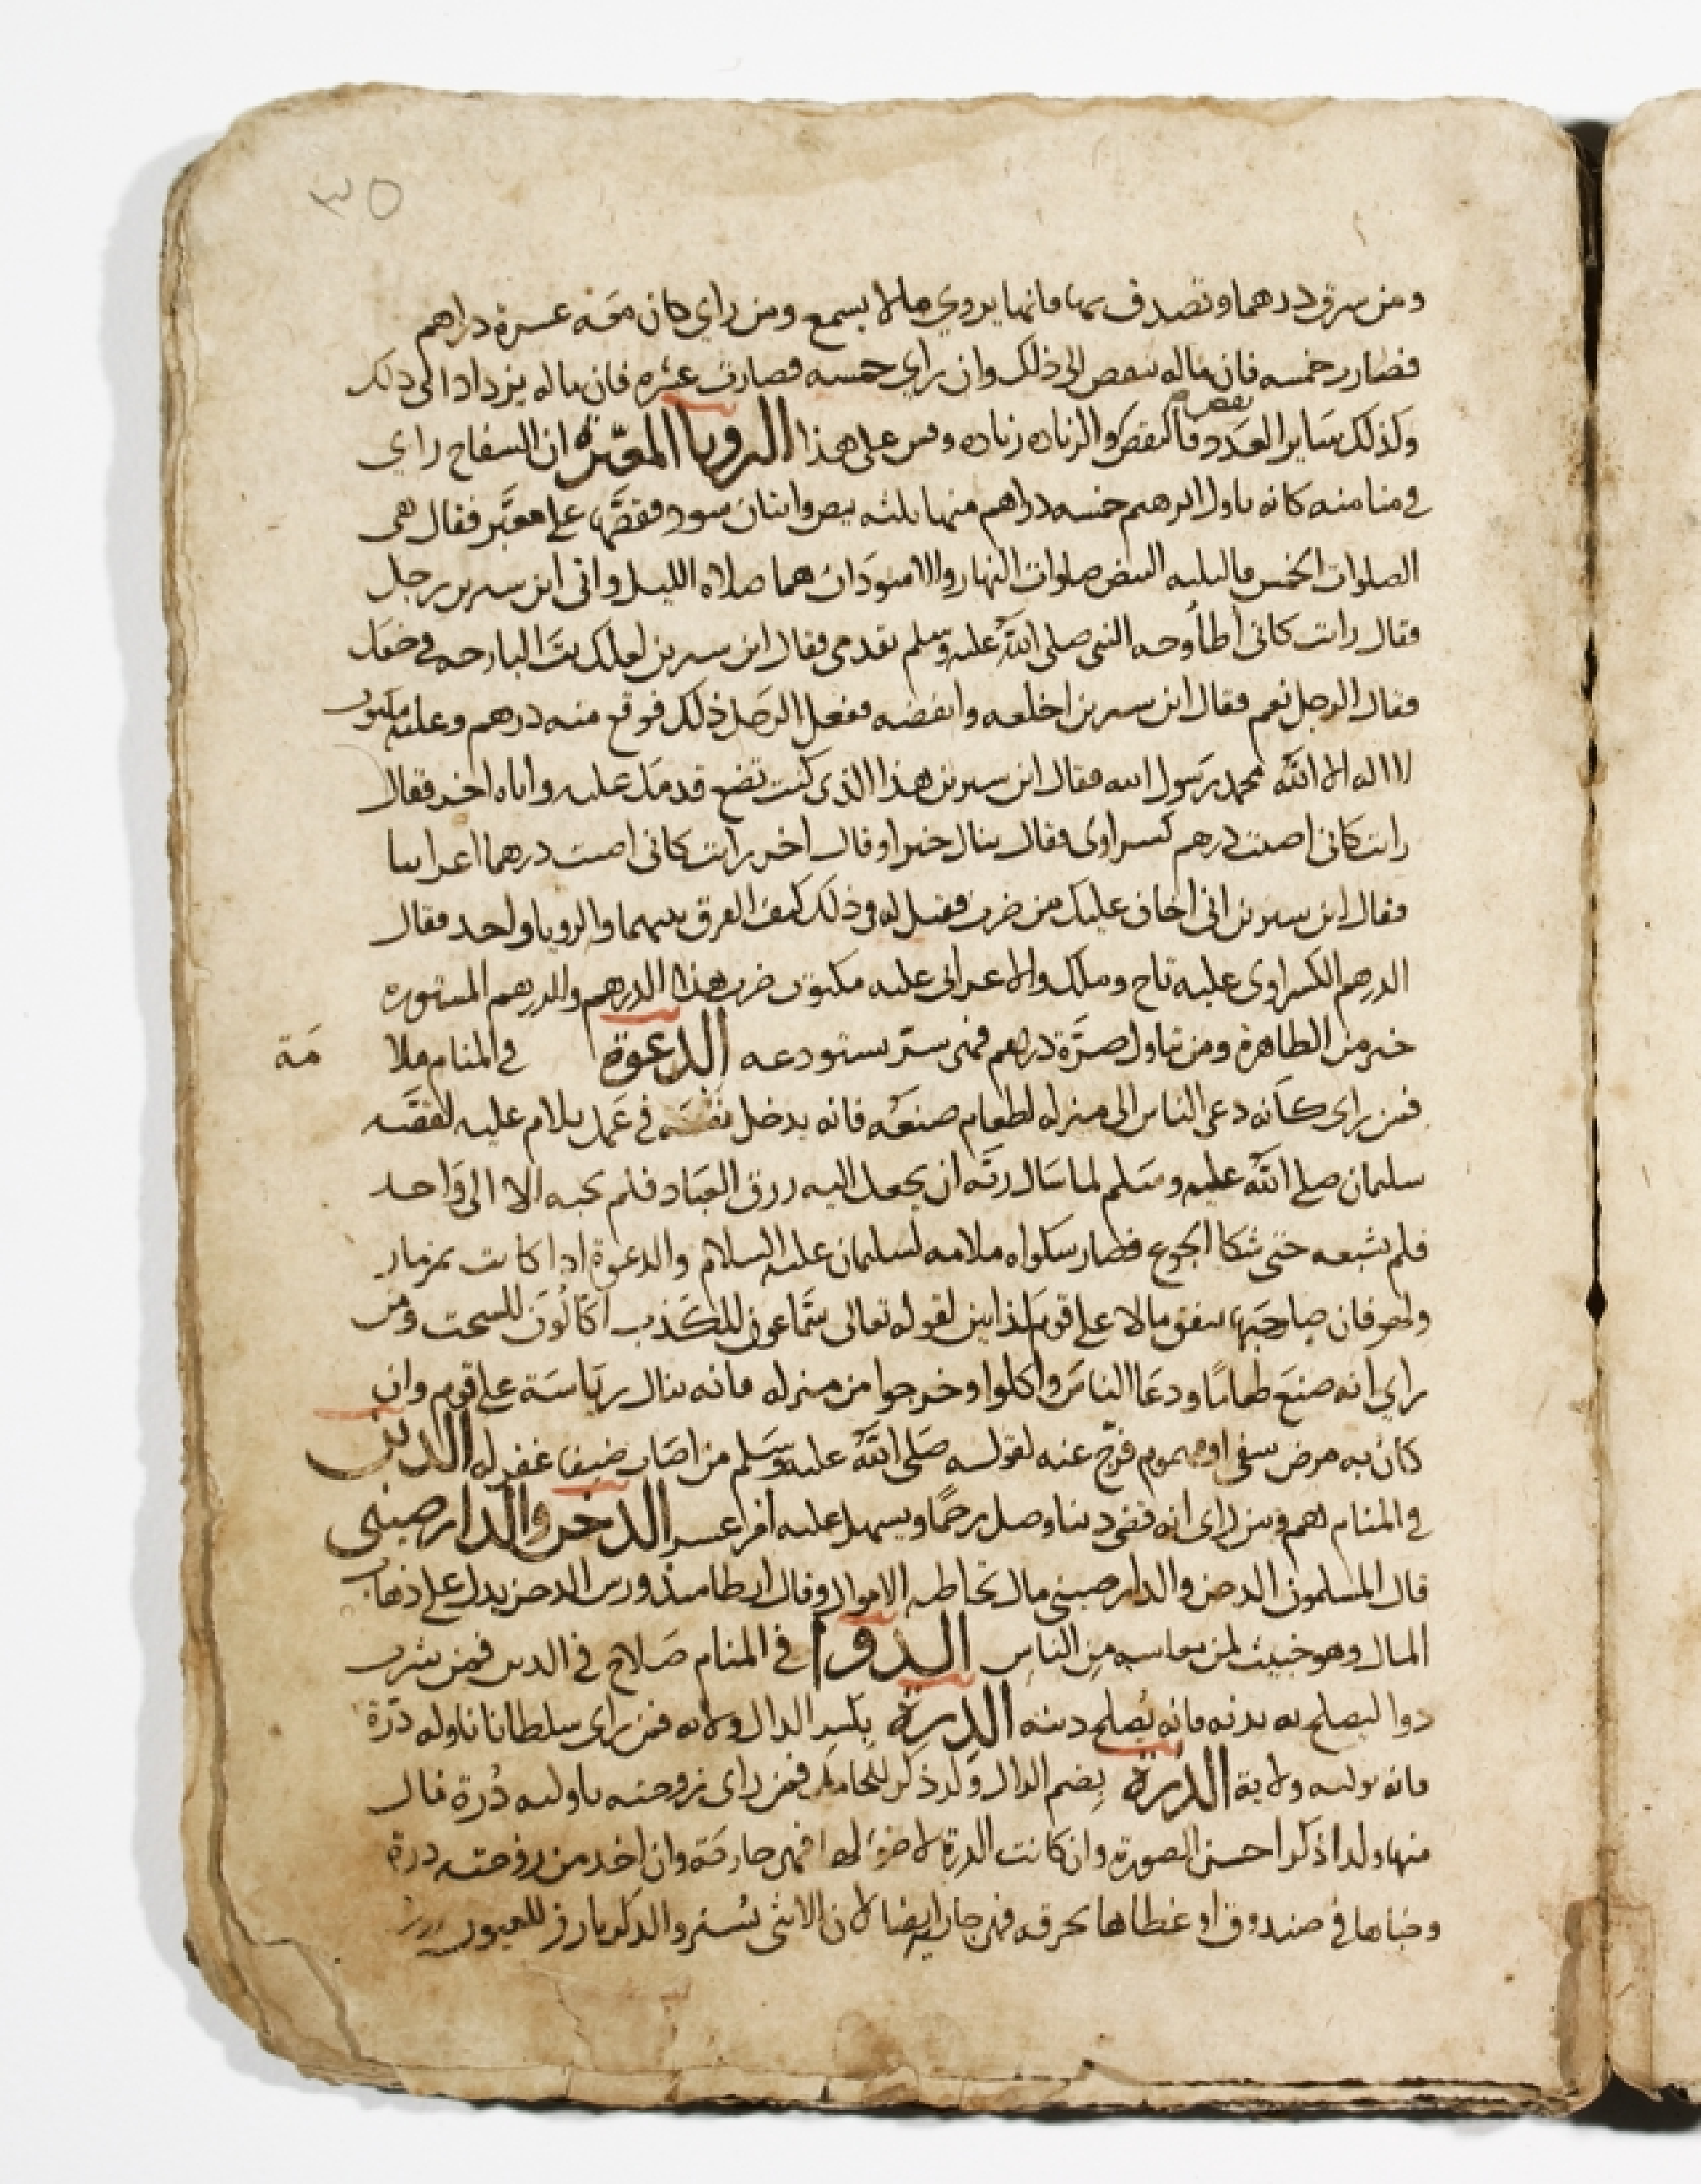 ٣٥
ومن سرق درهما وتصدق بها فانها يروي مالا يسمع ومن راي كان معه عشرة دراهم
فصارت خمسه فان ماله ينقص الى ذلك وان راي خمسه فصارت عشره فان ماله يزداد الى ذلك
وكذلك ساير العدد والزياده زياده وقس على هذا الرويا المعبرة ان السفاح راي
في منامه كانه ناول ابرهيم خمسه دراهم منها ثلثه بيض واثنان سود فقصها على معبر فقال هي
الصلوات الخمس فالثلثه البيض صلوات النهار والاسودان هما صلاة الليل واتى ابن سيرين رجل
فقال رايت كاني اطأ وجه النبي صلى الله عليه وسلم بقدمي فقال ابن سيرين لعلك بت البارحه في خفك
فقال الرجل نعم فقال ابن سيرين اخلعه وانفضه ففعل الرجل ذلك فوقع منه درهم وعليه مكتوب
لا اله الا الله محمد رسول الله فقال ابن سيرين هذا الذي كنت تضع قدمك عليه واتاه اخر فقال
رايت كاني اصبت درهم كسراوى فقال ينال خيرا وقال اخر رايت كاني اصبت درهما اعرابيا
فقال ابن سيرين اني اخاف عليك من ضرب فقيل له في ذلك كيف الفرق بينهما والرويا واحد فقال
الدرهم الكسراوى عليه تاج وملك والاعرابي عليه مكتوب ضرب هذا الدرهم والدرهم المستوره
خير من الظاهرة ومن تناول صرة درهم فهي ستر يستودعه الدعوة في المنام ملا مة
فمن راى كانه دعى الناس الى منزله لطعام صنعه فانه يدخل نفسه في عمل يلام عليه لقصه
سليمان صلى الله عليه وسلم لما سال ربه ان يجعل اليه رزق العباد فلم يجبه الا الى واحد
فلم يشبعه حتى شكا الجوع فصار شكواه ملامه لسليمان عليه السلام والدعوة اذا كانت بمزمار
ولهو فان صاحبها ينفق مالا على قوم كذابين لقوله تعالى سماعون للكذب اكالون للسحت ومن
راي انه صنع طعاما ودعا الناس واكلوا وخرجوا من منزله فانه ينال رياسة على قوم وان
كان به مرض شفى او مهموم فرج عنه لقوله صلى الله عليه وسلم من اضاف ضيفا غفر له الدين
في المنام لهم ومن راى انه قضى دينا وصل رحما ويسهل عليه امر عسر الدخن والدارصيني
قال المسلمون الدخن والدارصيني مال تخاطبه الاموال وقال ارطاميدورس الدخن يدل على ذهاب
المال وهو خبيث لمن معاشه من الناس الدوا في المنام صلاح في الدين فمن شرب
دوا ليصلح به بدنه فانه يصلح دينه الدرة بكسر الدال ولايه فمن راى سلطانا ناوله درة
فانه يوليه ولاية الدرة بضم الدال ولد ذكر للحامل فمن راى زوجته ناولته درة نال
منها ولدا ذكرا حسن الصورة وان كانت الدرة لا ضوء لها فهي جارية وان اخذ من زوجته درة
وخباها في صندوق او غطاها بخرقه فهي جارية ايضا لان الانثى تستتر والذكر بارز للعيون